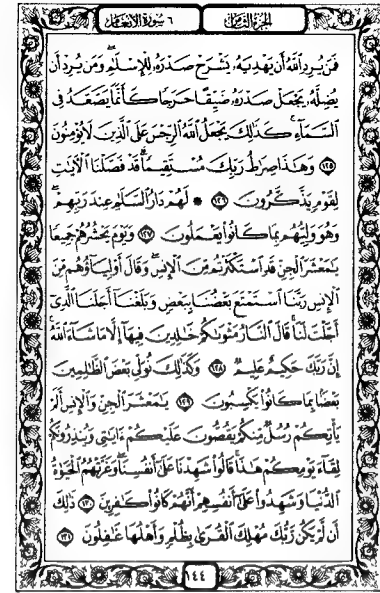 الجزء الثامن
٦ سورة الأنعام
فَمَن يُرِدِ ٱللَّهُ أَن يَهْدِيَهُۥ يَشْرَحْ صَدْرَهُۥ لِلْإِسْلَٰمِۖ وَمَن يُرِدْ أَن
يُضِلَّهُۥ يَجْعَلْ صَدْرَهُۥ ضَيِّقًا حَرَجًا كَأَنَّمَا يَصَّعَّدُ فِى
ٱلسَّمَآءِۚ كَذَٰلِكَ يَجْعَلُ ٱللَّهُ ٱلرِّجْسَ عَلَى ٱلَّذِينَ لَا يُؤْمِنُونَ
١٢٥ وَهَٰذَا صِرَٰطُ رَبِّكَ مُسْتَقِيمًاۗ قَدْ فَصَّلْنَا ٱلْءَايَٰتِ
لِقَوْمٍ يَذَّكَّرُونَ ١٢٦ * لَهُمْ دَارُ ٱلسَّلَٰمِ عِندَ رَبِّهِمْۖ
وَهُوَ وَلِيُّهُم بِمَا كَانُوا۟ يَعْمَلُونَ ١٢٧ وَيَوْمَ يَحْشُرُهُمْ جَمِيعًا
يَٰمَعْشَرَ ٱلْجِنِّ قَدِ ٱسْتَكْثَرْتُم مِّنَ ٱلْإِنسِۖ وَقَالَ أَوْلِيَآؤُهُم مِّنَ
ٱلْإِنسِ رَبَّنَا ٱسْتَمْتَعَ بَعْضُنَا بِبَعْضٍ وَبَلَغْنَآ أَجَلَنَا ٱلَّذِىٓ
أَجَّلْتَ لَنَاۚ قَالَ ٱلنَّارُ مَثْوَىٰكُمْ خَٰلِدِينَ فِيهَآ إِلَّا مَا شَآءَ ٱللَّهُۗ
إِنَّ رَبَّكَ حَكِيمٌ عَلِيمٌ ١٢٨ وَكَذَٰلِكَ نُوَلِّى بَعْضَ ٱلظَّٰلِمِينَ
بَعْضًۢا بِمَا كَانُوا۟ يَكْسِبُونَ ١٢٩ يَٰمَعْشَرَ ٱلْجِنِّ وَٱلْإِنسِ أَلَمْ
يَأْتِكُمْ رُسُلٌ مِّنكُمْ يَقُصُّونَ عَلَيْكُمْ ءَايَٰتِى وَيُنذِرُونَكُمْ
لِقَآءَ يَوْمِكُمْ هَٰذَاۚ قَالُوا۟ شَهِدْنَا عَلَىٰٓ أَنفُسِنَاۖ وَغَرَّتْهُمُ ٱلْحَيَوٰةُ
ٱلدُّنْيَا وَشَهِدُوا۟ عَلَىٰٓ أَنفُسِهِمْ أَنَّهُمْ كَانُوا۟ كَٰفِرِينَ ١٣٠ ذَٰلِكَ
أَن لَّمْ يَكُن رَّبُّكَ مُهْلِكَ ٱلْقُرَىٰ بِظُلْمٍ وَأَهْلُهَا غَٰفِلُونَ ١٣١
١٤٤